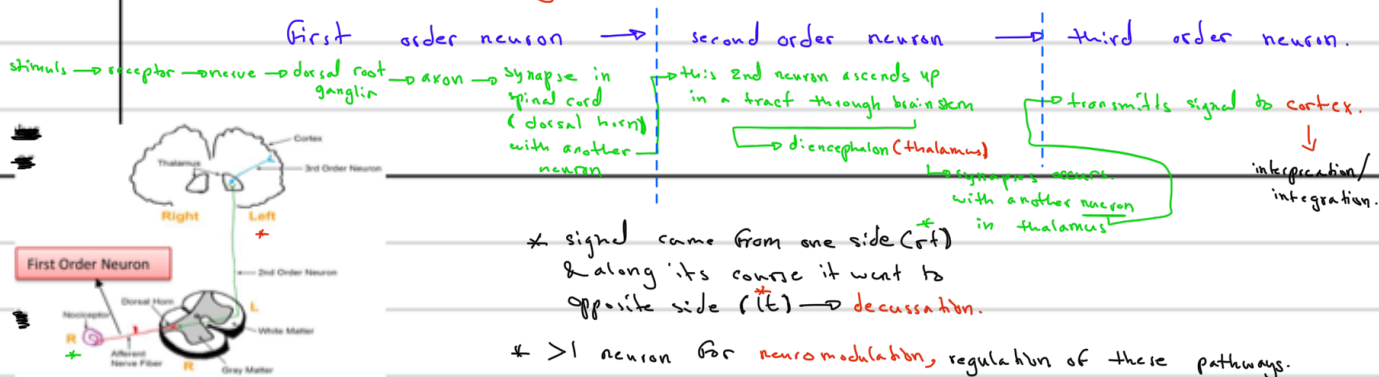 First order neuron → second order neuron → third order neuron.
stimuls → receptor → nerve → dorsal root ganglia → axon → synapse in
spinal cord
(dorsal horn)
with another
neuron
→ this 2nd neuron ascends up
in a tract through brainstem
→ diencephalon (thalamus)
↳ synapses occurs
with another nueron
in thalamus
→ transmitts signal to cortex.
↓
interpreation/
integration.
Cortex
Thalamus
3rd Order Neuron
Right Left
*
First Order Neuron
2nd Order Neuron
Dorsal Horn
L
Nociceptor
White Matter
R
*
Afferent
Nerve Fiber
R
Gray Matter
* signal came from one side (rt)*
& along its course it went to
opposite side (lt)* → decussation.
* >1 neuron for neuromodulation, regulation of these pathways.